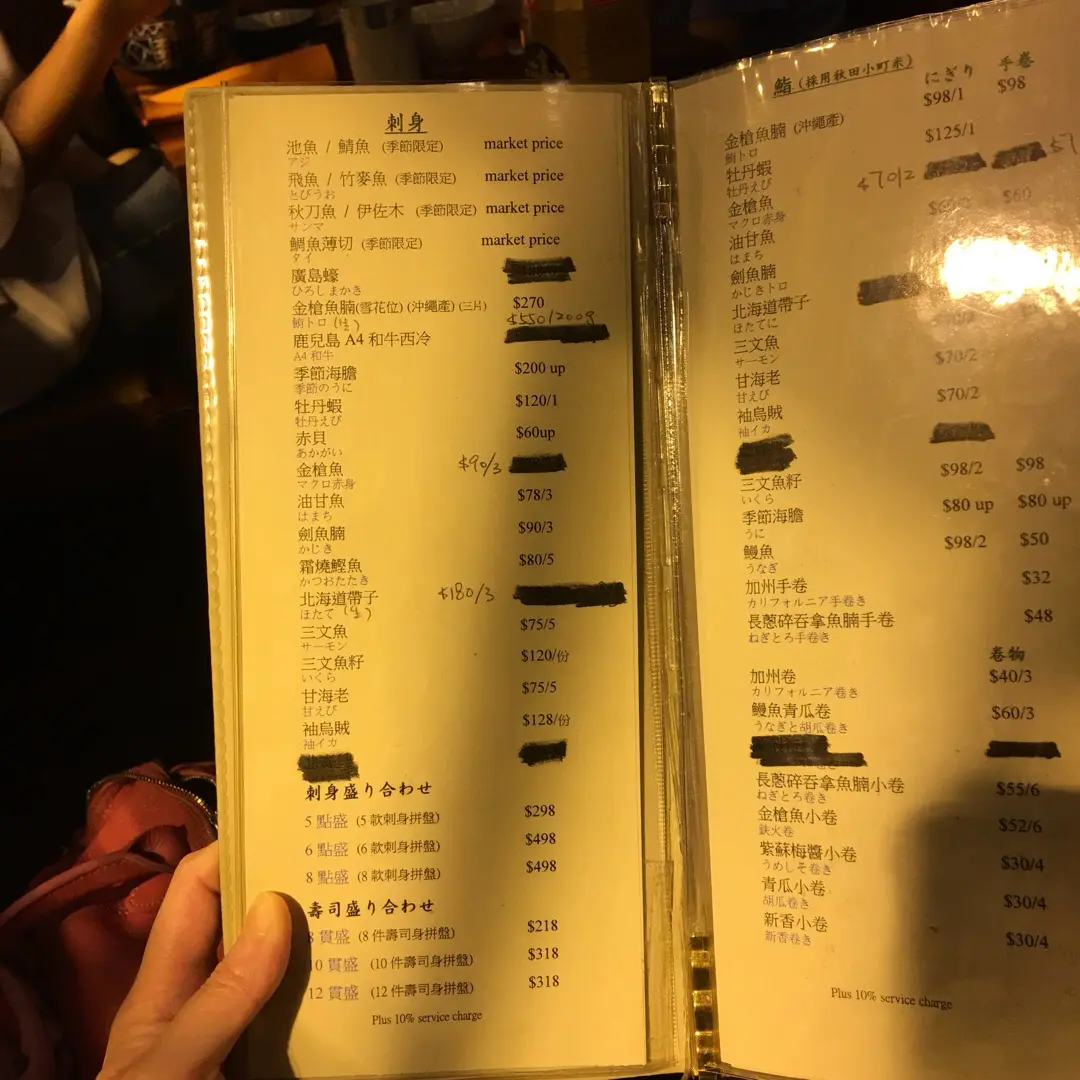 刺身
池魚 / 鯖魚 (季節限定) market price
アジ
飛魚 / 竹麥魚 (季節限定) market price
とびうお
秋刀魚 / 伊佐木 (季節限定) market price
サンマ
鯛魚薄切 (季節限定) market price
タイ
廣島蠔
ひろしまかき
金槍魚腩(雪花位) (沖繩產) (三片) $270
鮪トロ (生) $550/200g
鹿兒島 A4 和牛西冷
A4 和牛
季節海膽 $200 up
季節のうに
牡丹蝦 $120/1
牡丹えび
赤貝 $60up
あかがい
金槍魚 $90/3
マクロ赤身
油甘魚 $78/3
はまち
劍魚腩 $90/3
かじき
霜燒鰹魚 $80/5
かつおたたき
北海道帶子 $180/3
ほたて (生)
三文魚 $75/5
サーモン
三文魚籽 $120/份
いくら
甘海老 $75/5
甘えび
袖烏賊 $128/份
袖イカ
刺身盛り合わせ
5 點盛 (5 款刺身拼盤) $298
6 點盛 (6 款刺身拼盤) $498
8 點盛 (8 款刺身拼盤) $498
壽司盛り合わせ
8 貫盛 (8 件壽司身拼盤) $218
10 貫盛 (10 件壽司身拼盤) $318
12 貫盛 (12 件壽司身拼盤) $318
Plus 10% service charge
鮨 (採用秋田小町米) にぎり 手卷
金槍魚腩 (沖繩產) $98/1 $98
鮪トロ
牡丹蝦 $125/1
牡丹えび
金槍魚 $70/2
マクロ赤身
油甘魚 $60
はまち
劍魚腩
かじきトロ
北海道帶子
ほたてに
三文魚 $70/2
サーモン
甘海老 $70/2
甘えび
袖烏賊
袖イカ
三文魚籽 $98/2 $98
いくら
季節海膽 $80 up $80 up
うに
鰻魚 $98/2 $50
うなぎ
加州手卷 $32
カリフォルニア手卷き
長蔥碎吞拿魚腩手卷 $48
ねぎとろ手卷き
卷物
加州卷 $40/3
カリフォルニア卷き
鰻魚青瓜卷 $60/3
うなぎと胡瓜卷き
長蔥碎吞拿魚腩小卷 $55/6
ねぎとろ卷き
金槍魚小卷 $52/6
鉄火卷
紫蘇梅醬小卷 $30/4
うめしそ卷き
青瓜小卷 $30/4
胡瓜卷き
新香小卷 $30/4
新香卷き
Plus 10% service charge